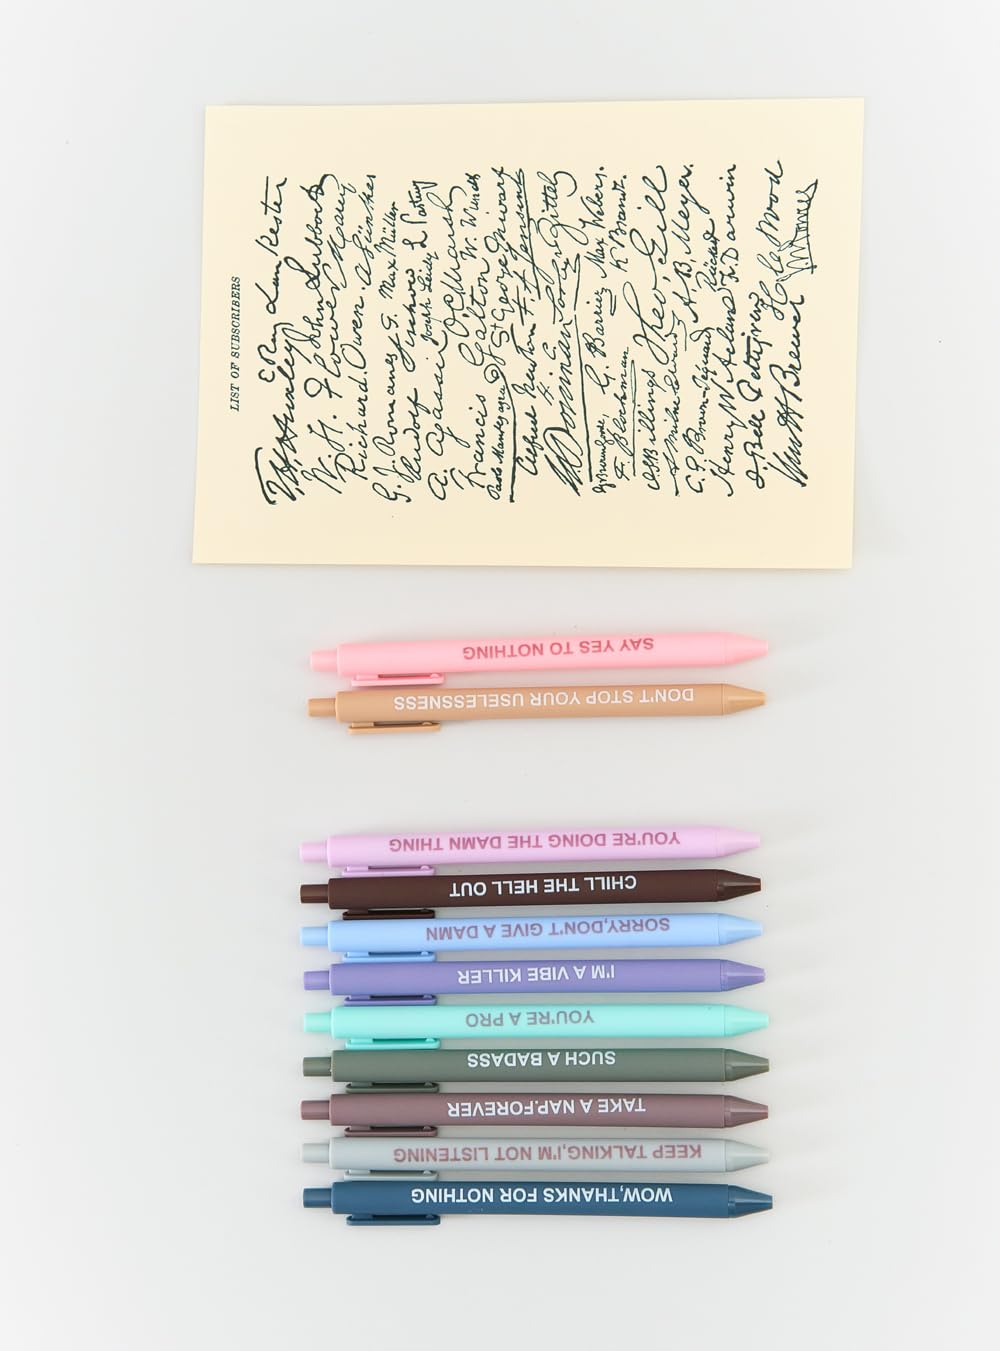 LIST OF SUBSCRIBERS
T. H. Huxley E Ray Lankester
W. H. Flower John Lubbock
Richard Owen A Günther
G. J. Romanes F. Max Müller
Rudolf Virchow Joseph Leidy L Pasteur
A. Agassiz O C Marsh
Francis Galton W. Wundt
Paolo Mantegazza St George Mivart
Alfred Newton
K. Brandt.
F. Blochmann
G. Barrier Max Weber.
J S Billings Theo. Gill
A B, Meyer.
C. E. Brown-Séquard
Henry W Acland Fr. Darwin
J. Bell Pettigrew
SAY YES TO NOTHING
DON'T STOP YOUR USELESSNESS
YOU'RE DOING THE DAMN THING
CHILL THE HELL OUT
SORRY,DON'T GIVE A DAMN
I'M A VIBE KILLER
YOU'RE A PRO
SUCH A BADASS
TAKE A NAP.FOREVER
KEEP TALKING,I'M NOT LISTENING
WOW,THANKS FOR NOTHING